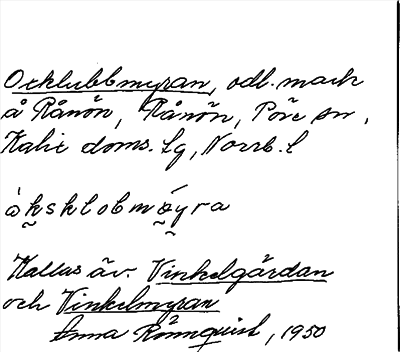 Oxklubbmyran, odl. mark
å Rånön, Rånön, Töre sn,
Kalix doms. lg, Norrb. l
òksklobmǿyra
Kallas äv. Vinkelgärdan
och Vinkelmyran
Anna Rönnquist, 1950